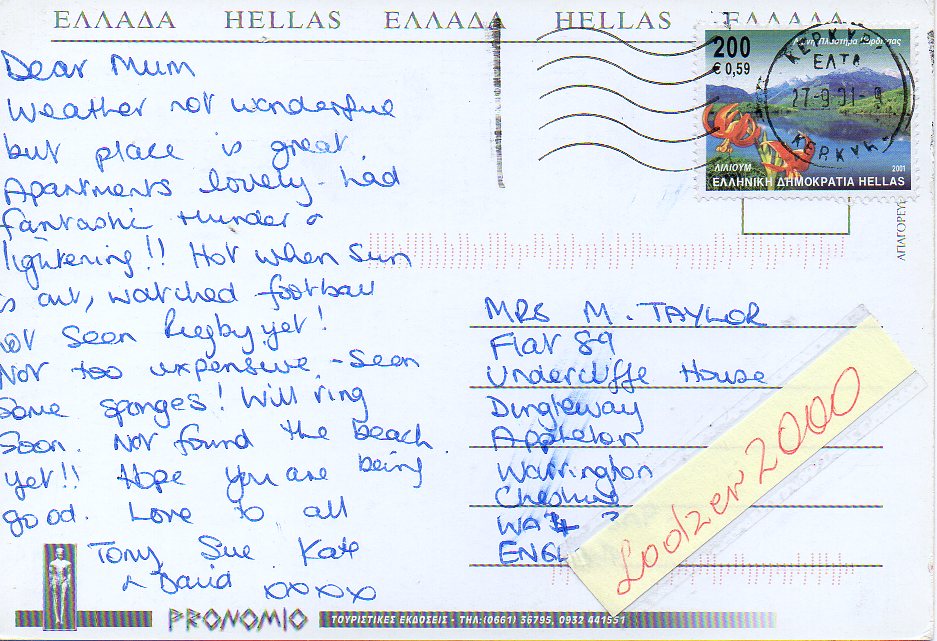 ΕΛΛΑΔΑ HELLAS ΕΛΛΑΔΑ HELLAS ΕΛΛΑΔΑ
Dear Mum
Weather not wonderful
but place is great.
Apartments lovely - had
fantastic thunder &
lightening!! Hot when sun
is out, watched football
not seen Rugby yet!
Not too expensive - Seen
Some sponges! Will ring
Soon. Not found the beach
yet!! Hope you are being
good. Love to all
Tony Sue Kate
& David xoxox
200
€ 0,59
ΚΕΡΚΥΡΑ
ΕΛΤΑ
27-9 01-8
ΚΕΡΚΥΡΑ
ΛΙΛΙΟΥΜ
2001
ΕΛΛΗΝΙΚΗ ΔΗΜΟΚΡΑΤΙΑ HELLAS
MRS M. TAYLOR
Flat 89
Undercliffe House
Dingleway
Appleton
Warrington
Cheshire
WA4
ENGL
Lodzer2000
PRONOMIO ΤΟΥΡΙΣΤΙΚΕΣ ΕΚΔΟΣΕΙΣ - ΤΗΛ: (0661) 36795, 0932 441551